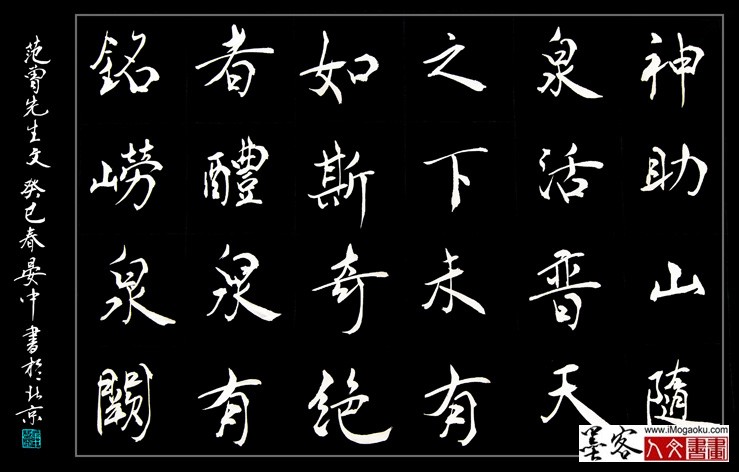 神助山隨
泉活普天
之下未有
如斯奇绝
者醴泉有
銘嶗泉闕
范曾先生文 癸巳春晏中書於北京
墨客
www.iMogaoku.com
人文書畫